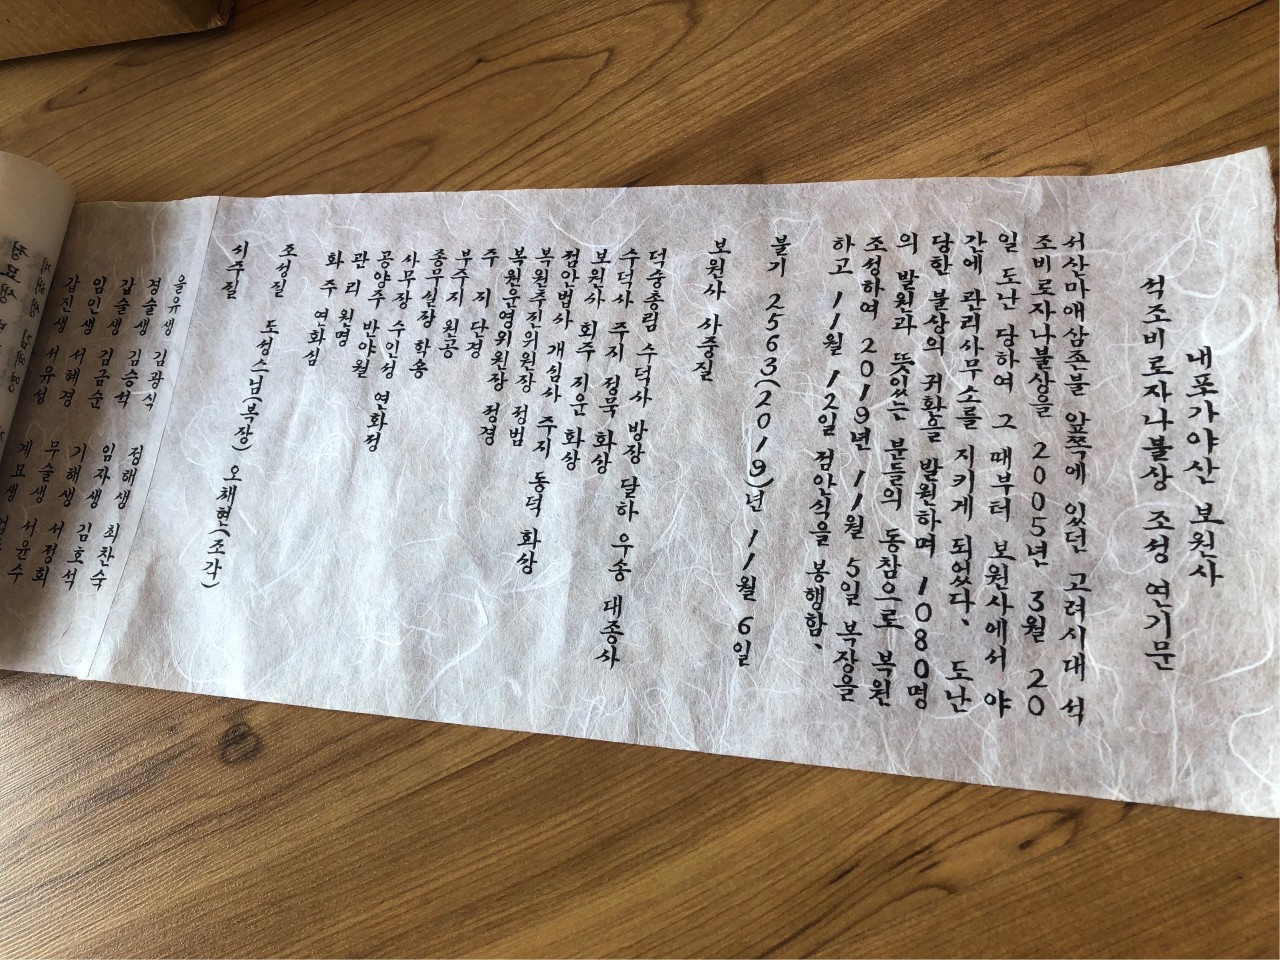 내포가야산 보원사
석조비로자나불상 조성 연기문
서산마애삼존불 앞쪽에 있던 고려시대 석
조비로자나불상을 2005년 3월 20
일 도난 당하여 그 때부터 보원사에서 야
간에 관리사무소를 지키게 되었다. 도난
당한 불상의 귀환을 발원하며 1080명
의 발원과 뜻있는 분들의 동참으로 복원
조성하여 2019년 11월 5일 복장을
하고 11월 12일 점안식을 봉행함.
불기 2563(2019)년 11월 6일
보원사 사중질
덕숭총림 수덕사 방장 달하 우송 대종사
수덕사 주지 정묵 화상
보원사 회주 지운 화상
점안법사 개심사 주지 동덕 화상
복원추진위원장 정범
복원운영위원장 정경
주 지 단경
부주지 원공
종무실장 학송
사무장 수인성 연화정
공양주 반야월
관 리 원명
화 주 연화심
조성질 도성스님(복장) 오채현(조각)
시주질
을유생 김광식 정해생 최찬숙
경술생 김승석 임자생 김호석
갑술생 김금순 기해생 서정희
임인생 서혜경 무술생 서윤수
갑진생 서유성 계묘생